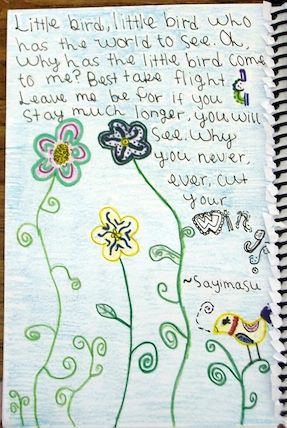 Little bird, little bird who
has the world to see. Oh,
Why has the little bird come
to me? Best take flight
Leave me be for if you
stay much longer, you will
see. Why
you never,
ever, cut
your
Wings.
~Sayimasu